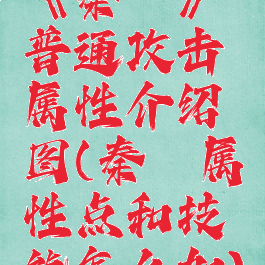 《秦 》
普通攻击
属性介绍
图(秦 属
性点和技